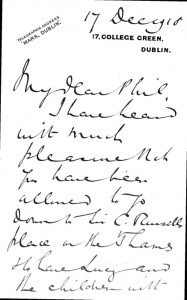 TELEGRAPHIC ADDRESS
MARS, DUBLIN.
17 Dec 918
17, COLLEGE GREEN,
DUBLIN.
My dear Phil,
I have heard
with much
pleasure that
you have been
allowed to go
down to Sir C. Russell's
place on the Thames
to have Lucy and
the children with